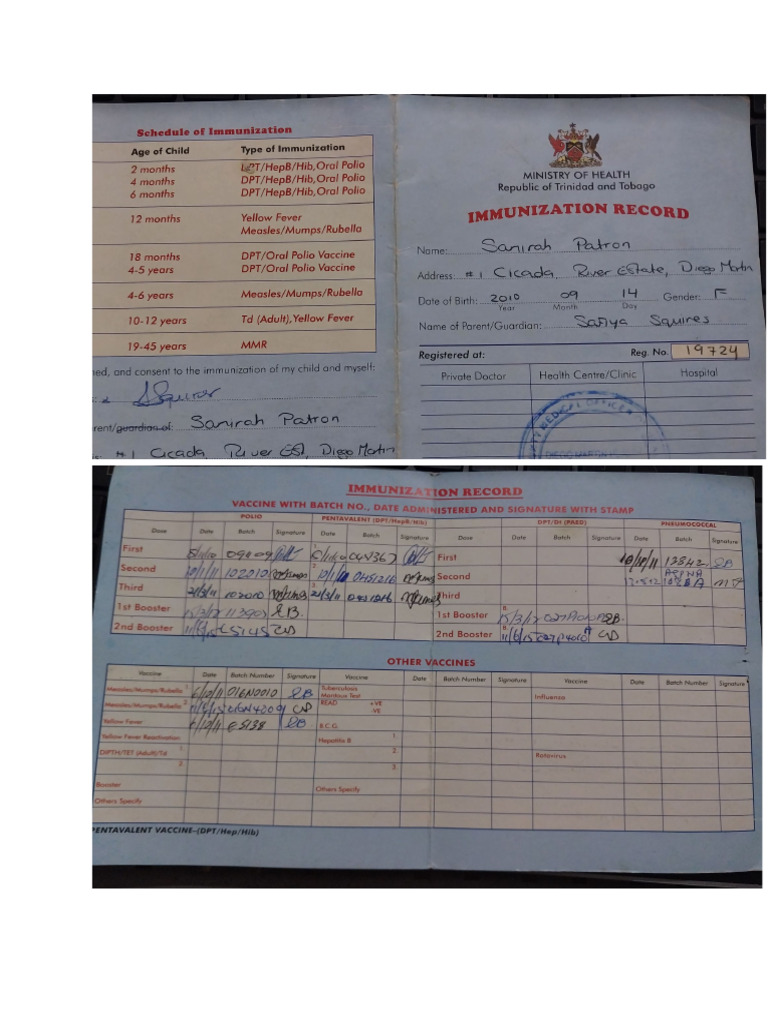 Schedule of Immunization
Age of Child Type of Immunization
2 months DPT/HepB/Hib, Oral Polio
4 months DPT/HepB/Hib, Oral Polio
6 months DPT/HepB/Hib, Oral Polio
12 months Yellow Fever
Measles/Mumps/Rubella
18 months DPT/Oral Polio Vaccine
4-5 years DPT/Oral Polio Vaccine
4-6 years Measles/Mumps/Rubella
10-12 years Td (Adult), Yellow Fever
19-45 years MMR
and consent to the immunization of my child and myself:
guardian of: Sanirah Patron
#1 Cicada, River Est, Diego Martin
MINISTRY OF HEALTH
Republic of Trinidad and Tobago
IMMUNIZATION RECORD
Name: Sanirah Patron
Address: #1 Cicada, River Estate, Diego Martin
Date of Birth: 2010 09 14 Gender: F
Year Month Day
Name of Parent/Guardian: Safiya Squires
Registered at: Reg. No. 19724
Private Doctor Health Centre/Clinic Hospital
MEDICAL OFFICER
IMMUNIZATION RECORD
VACCINE WITH BATCH NO., DATE ADMINISTERED AND SIGNATURE WITH STAMP
POLIO PENTAVALENT (DPT/HepB/Hib) DPT/DI (PAED) PNEUMOCOCCAL
Dose Date Batch Signature Date Batch Signature Dose Date Batch Signature Date Batch Signature
First First 13542
Second 10/1/11 102010 10/1/11 Second
Third 21/3/11 102010 21/3/11 Third
1st Booster 15/3/12 1st Booster 15/3/12
2nd Booster 11/6/15 2nd Booster 11/6/15
OTHER VACCINES
Vaccine Date Batch Number Signature Vaccine Date Batch Number Signature Vaccine Date Batch Number Signature
Measles/Mumps/Rubella 1 6/10/11 016N0010 Tuberculosis Mantoux Test Influenza
Measles/Mumps/Rubella 2 11/6/15 READ +VE
-VE
Yellow Fever 6/10/11 E5138 B.C.G.
Yellow Fever Reactivation Hepatitis B 1
DIPTH/TET (Adult)/Td 1 2 Rotovirus
2 3
Booster Others Specify
Others Specify
PENTAVALENT VACCINE-(DPT/Hep/Hib)